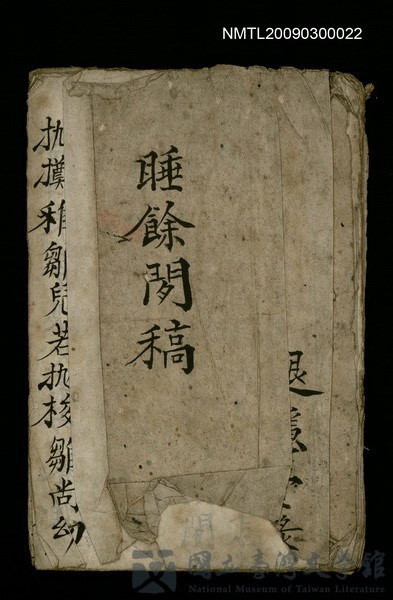 NMTL20090300022
退
睡餘閒稿
執模稚鄒兒若執梭雛尚幼
國立臺灣文學館
National Museum of Taiwan Literature